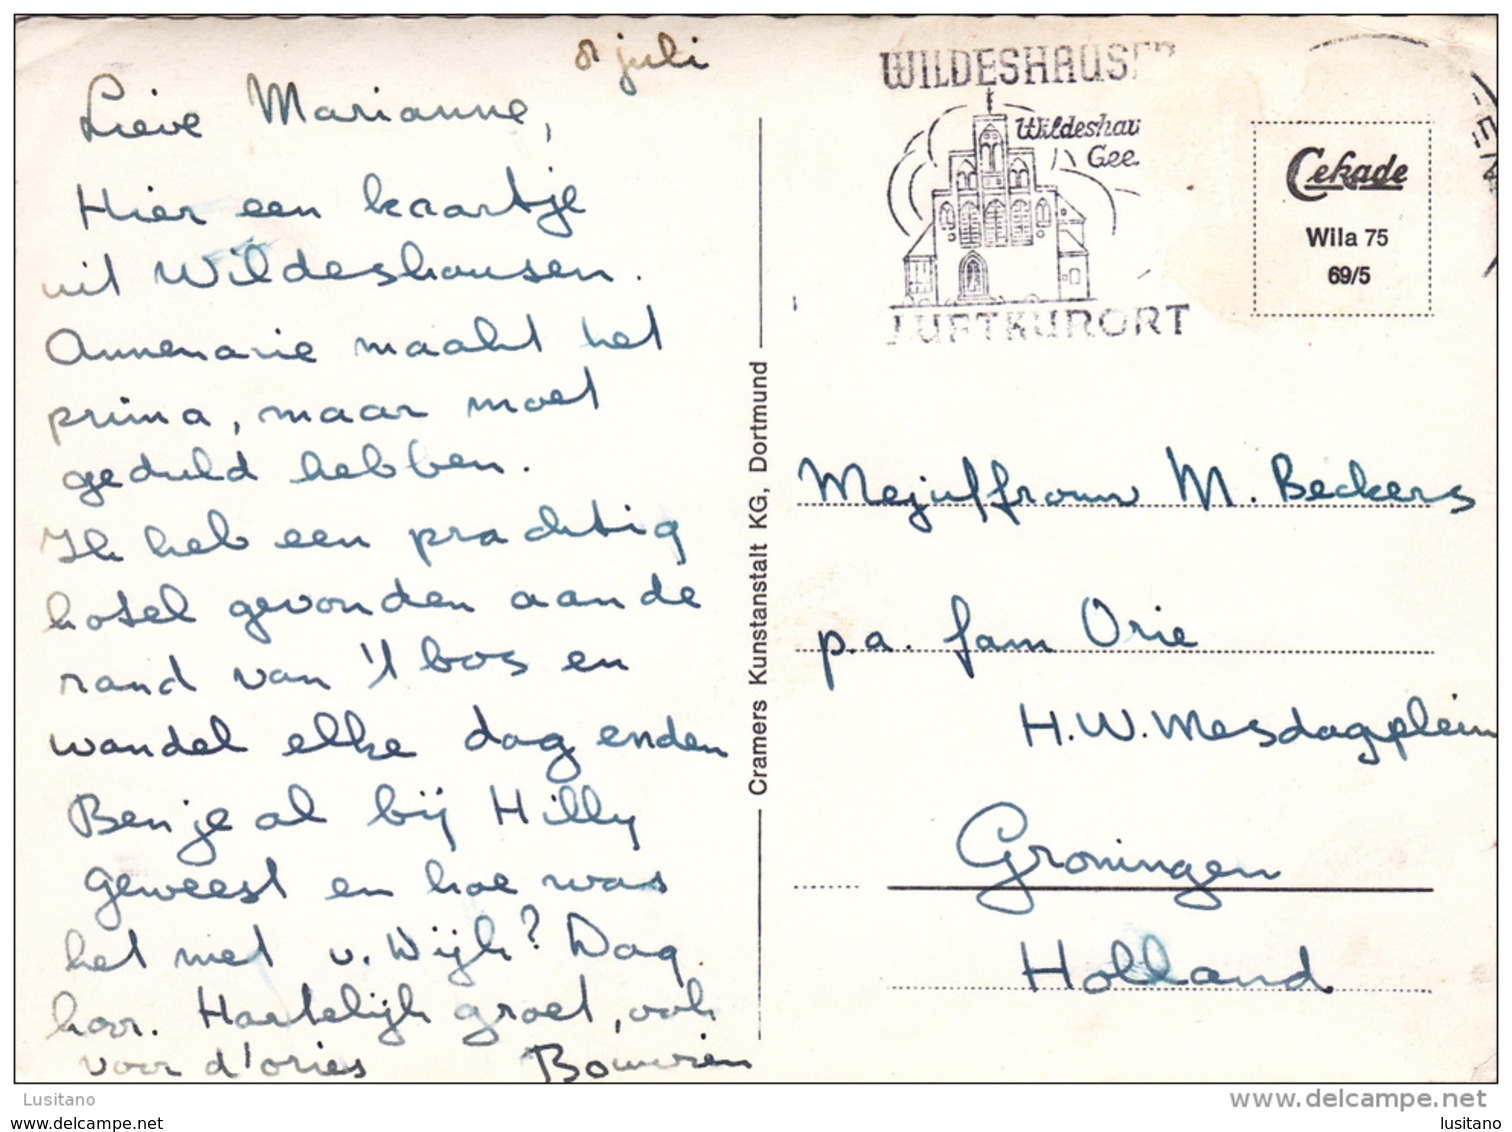 8 juli
Lieve Marianne,
Hier een kaartje
uit Wildeshausen.
Annemarie maakt het
prima, maar moet
geduld hebben.
Ik heb een prachtig
hotel gevonden aan de
rand van 't bos en
wandel elke dag enden
Ben je al bij Hilly
geweest en hoe was
het met v. Wijk? Dag
hoor. Hartelijk groet, ook
voor d'ories
WILDESHAUSE
Wildeshau
Gee
LUFTKURORT
Cekade
Wila 75
69/5
Cramers Kunstanstalt KG, Dortmund
Mejuffrouw M. Beckers
p.a. fam Orie
H.W. Mesdagplein
Groningen
Holland
Lusitano
www.delcampe.net
lusitano
lusitano